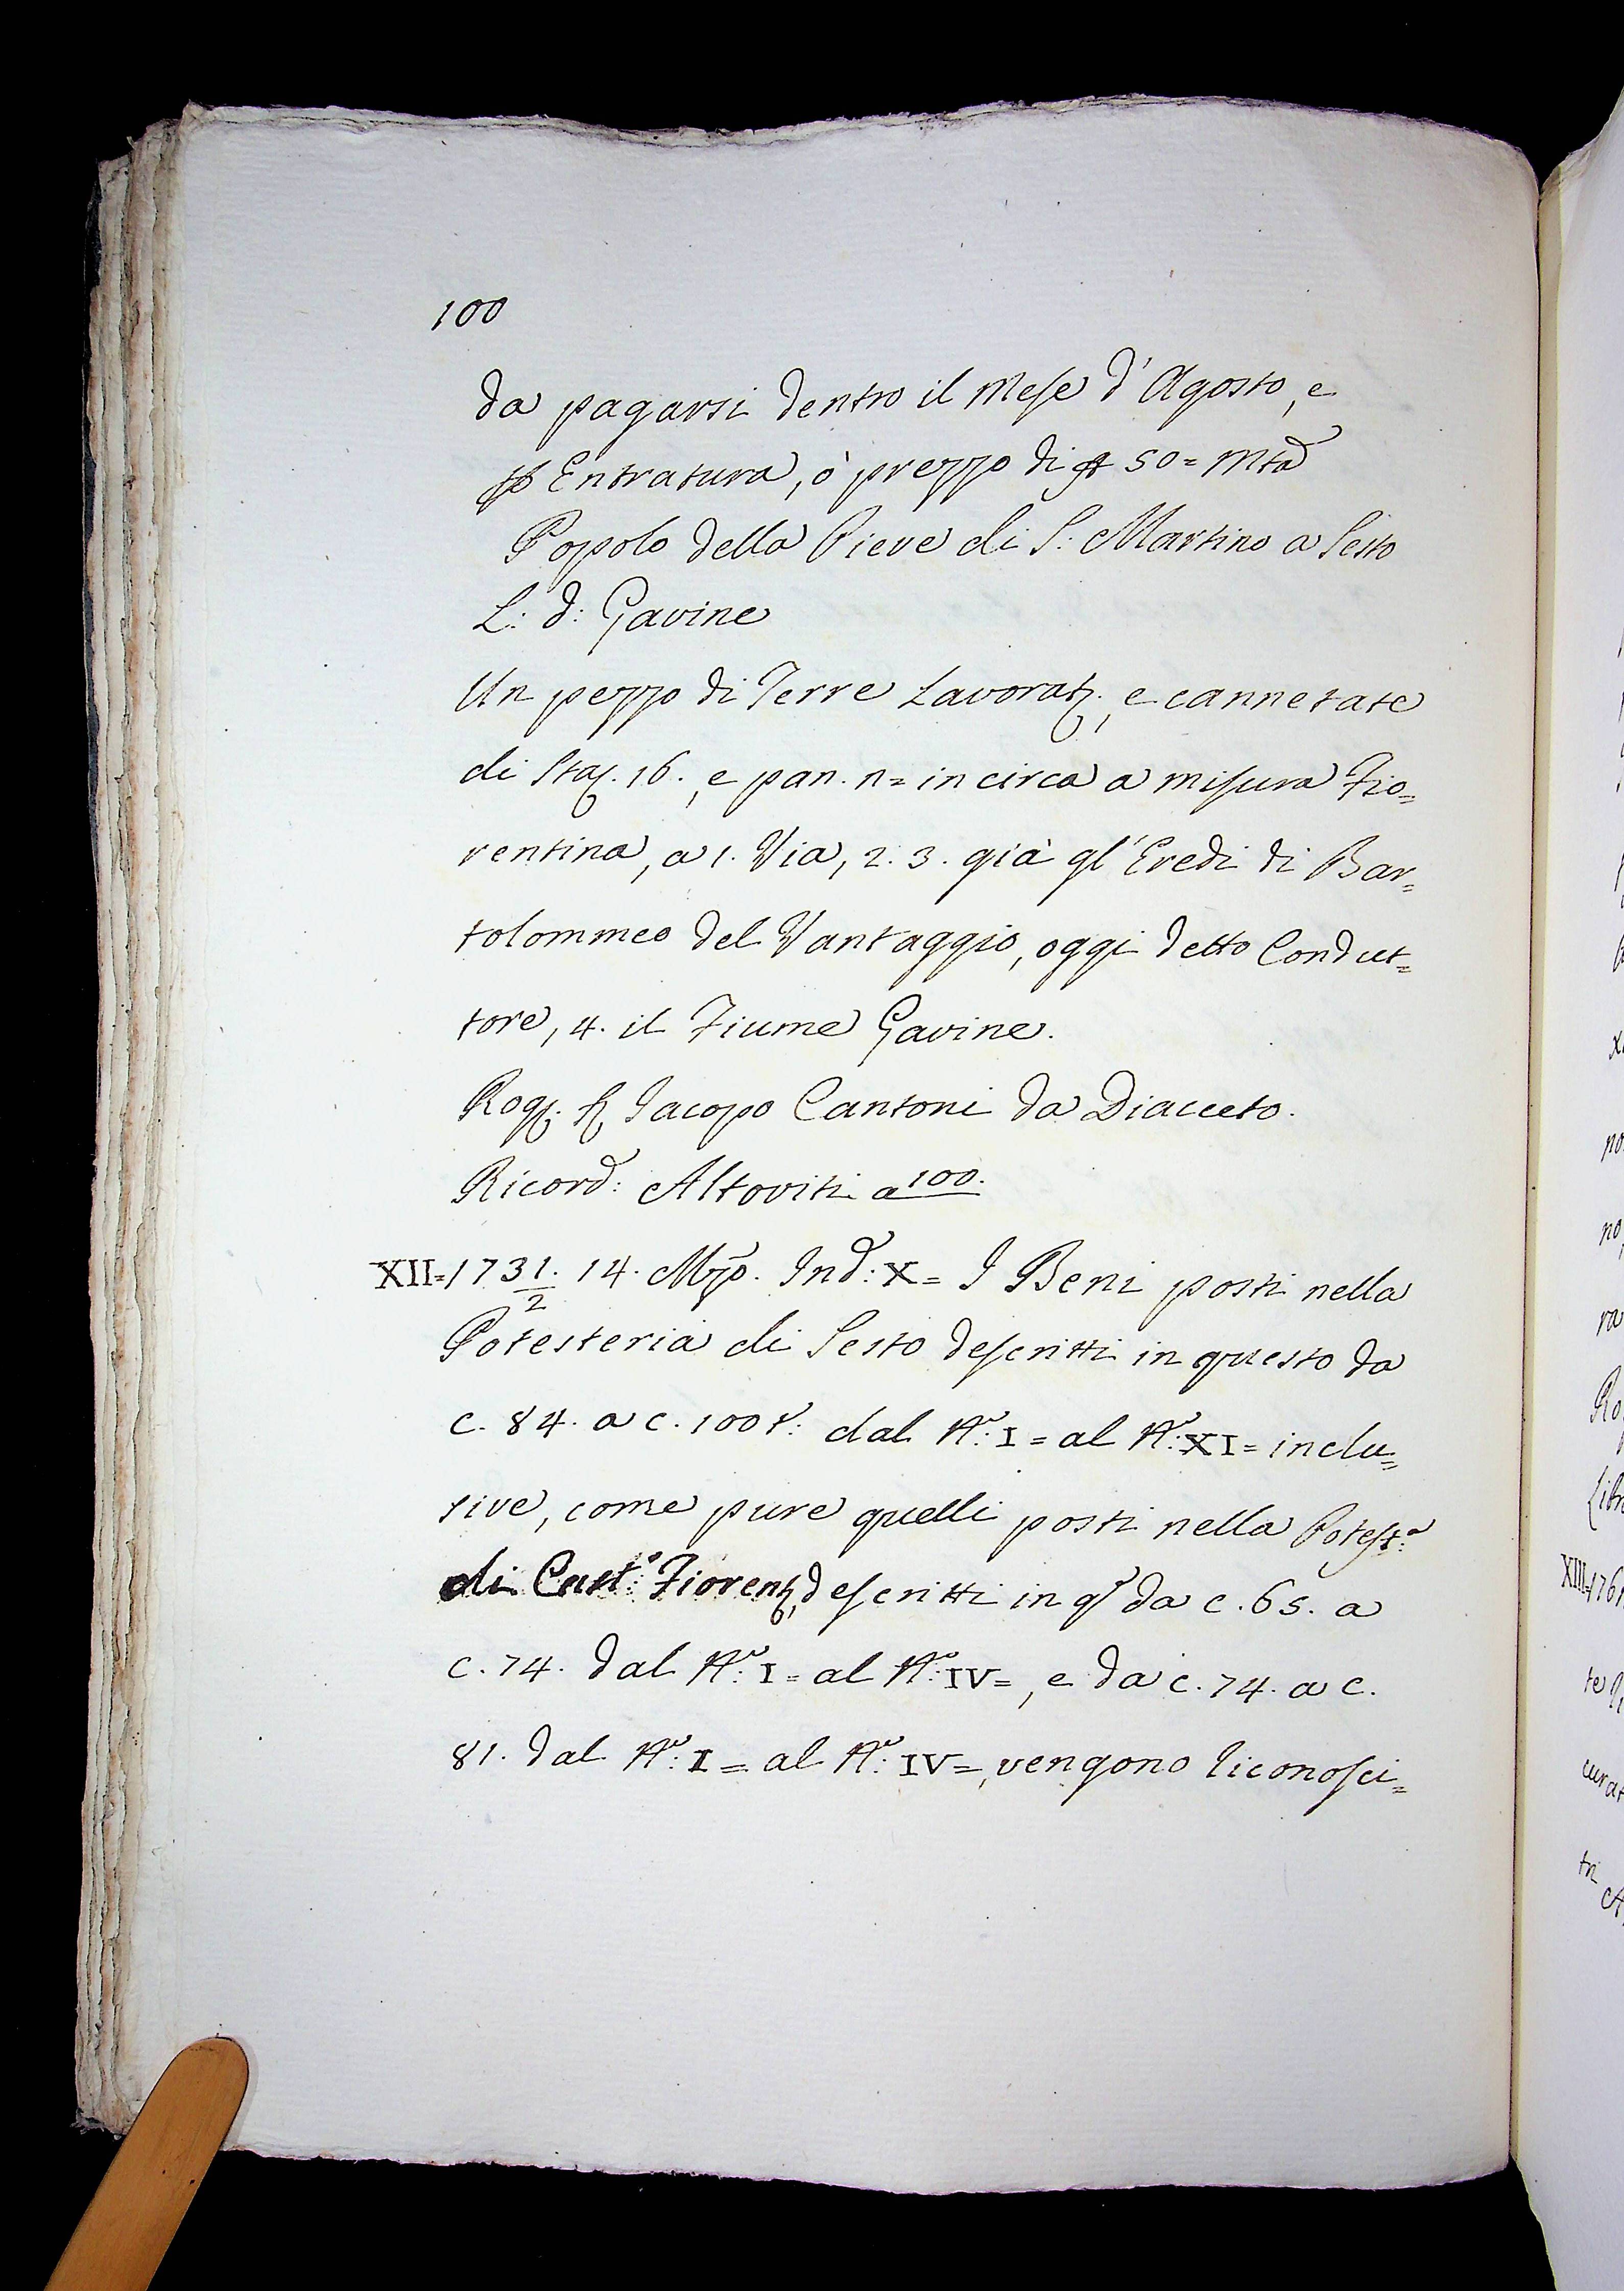 100
da pagarsi dentro il Mese d'Agosto, e
p Entratura, ò prezzo di 50= mta
Popolo della Pieve di S: Martino a Sesto
L: d: Gavine
Un pezzo di Terre Lavorat:, e cannetate
di Staj. 16., e pan. n= in circa a misura Fio=
rentina, a 1. Via, 2. 3. già gl'Eredi di Bar=
tolommeo del Vantaggio, oggi detto Condut=
tore, 4. il Fiume Gavine.
Rog. Iacopo Cantoni da Diacceto.
Ricord: Altoviti a 100.
XII=1731/2. 14. Mzo. Ind: X= I Beni posti nella
Potesteria di Sesto descritti in questo da
c. 84. a c. 100 t: dal No: I= al No: XI= inclu=
sive, come pure quelli posti nella Potest:a
di Cast:o Fiorent, descritti in qo da c. 65. a
c. 74. dal No: I= al No: IV=, e da c. 74. a c.
81. dal No: I= al No: IV=, vengono riconosci=